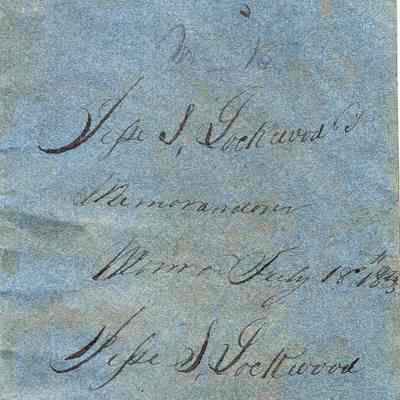 Jesse S, Lockwood's
Memorandum
Monro July 18th 1843
Jesse S, Lockwood